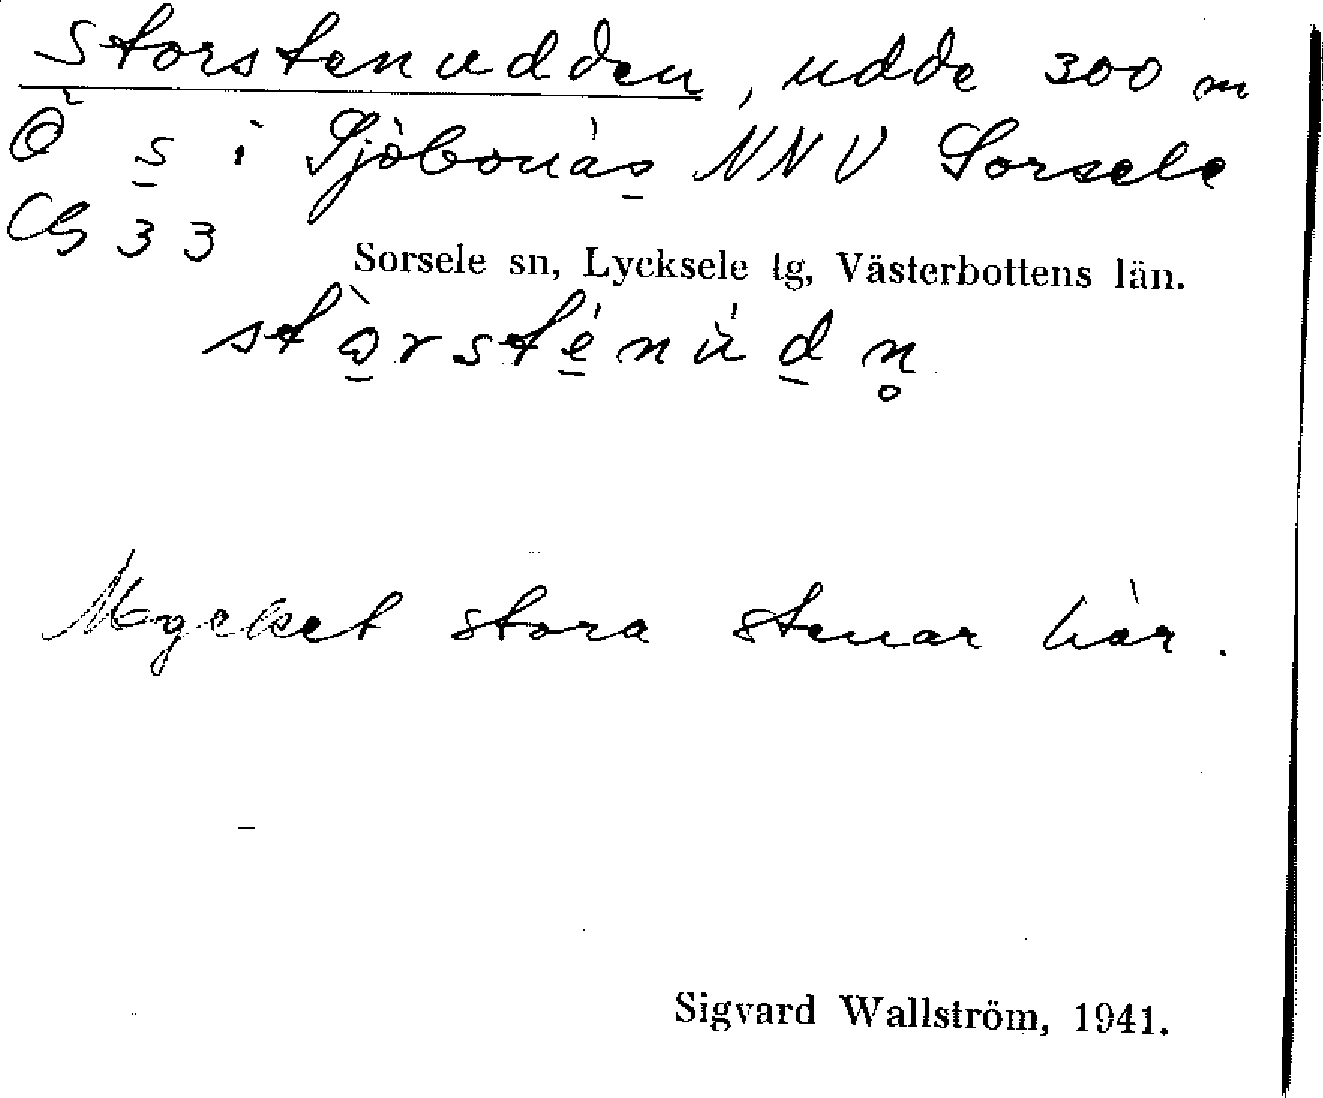 Storstenudden, udde 300 m
Ö s i Sjöbonäs NNV Sorsele
CG 33
Sorsele sn, Lycksele tg, Västerbottens län.
Mycket stora stenar här.
Sigvard Wallström, 1941.